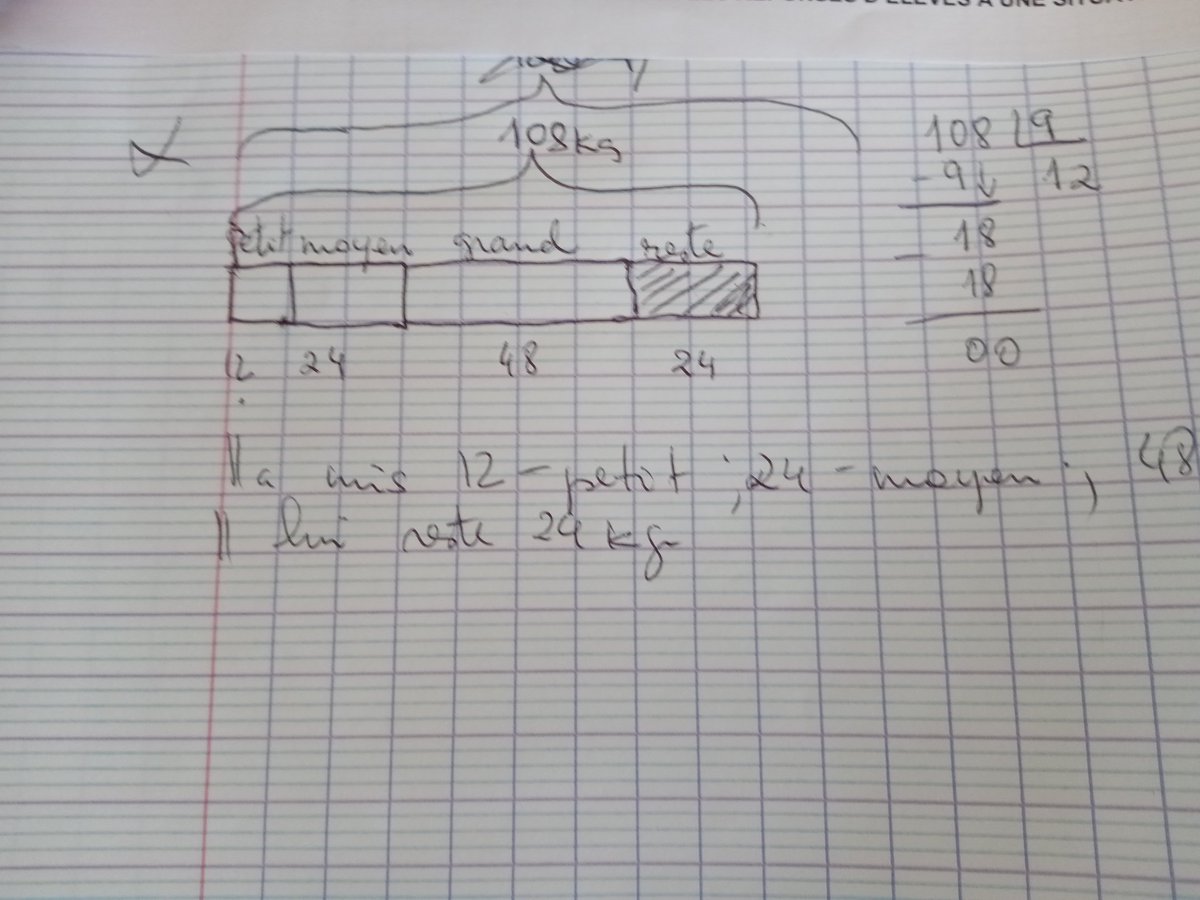 108kg
petit moyen grand reste
12 24 48 24
108 9
-9↓ 12
18
-
18
00
Il a mis 12 - petit ; 24 - moyen ; 48
Il lui reste 24 kg